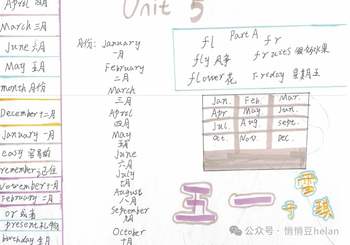 Unit 5
April 四月
March 三月
June 六月
May 五月
month 月份
December 十二月
January 一月
easy 容易的
remember 记住
November 十一月
February 二月
or 或者
present 礼物
birthday 生日
月份: January
一月
February
二月
March
三月
April
四月
May
五月
June
六月
July
七月
August
八月
September
九月
October
十月
Part A
fl fr
fly 飞 fruits
flower 花 Friday 星期五
Jan. Feb. Mar.
Apr May Jun.
Jul. Aug. sept.
Oct. Nov. Dec.
五一
公众号 · 悄悄豆helan